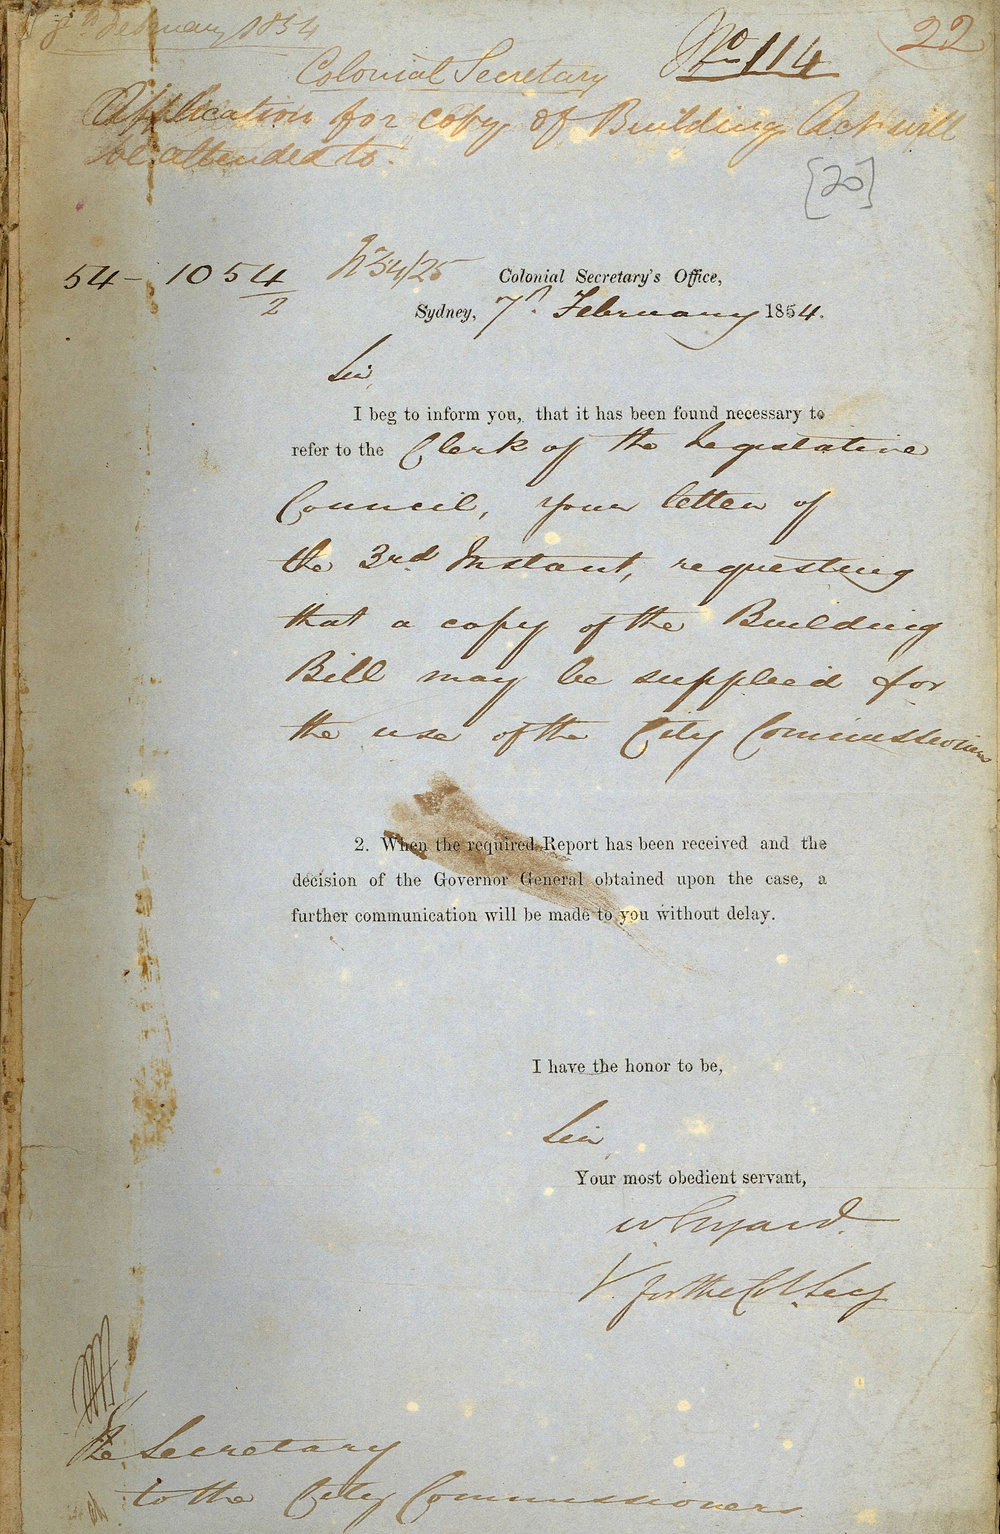 7th February 1854
22
Colonial Secretary
No 114
Application for copy of Building Act will
be attended to.
[25]
54 - 1054/2
No 54/25
Colonial Secretary's Office,
Sydney, 7th February 1854.
Sir
I beg to inform you, that it has been found necessary to
refer to the Clerk of the Legislative
Council, your letter of
the 3rd Instant, requesting
that a copy of the Building
Bill may be supplied for
the use of the City Commissioners
2. When the required Report has been received and the
decision of the Governor General obtained upon the case, a
further communication will be made to you without delay.
I have the honor to be,
Sir
Your most obedient servant,
W Elyard.
for the Col Secy
The Secretary
to the City Commissioners